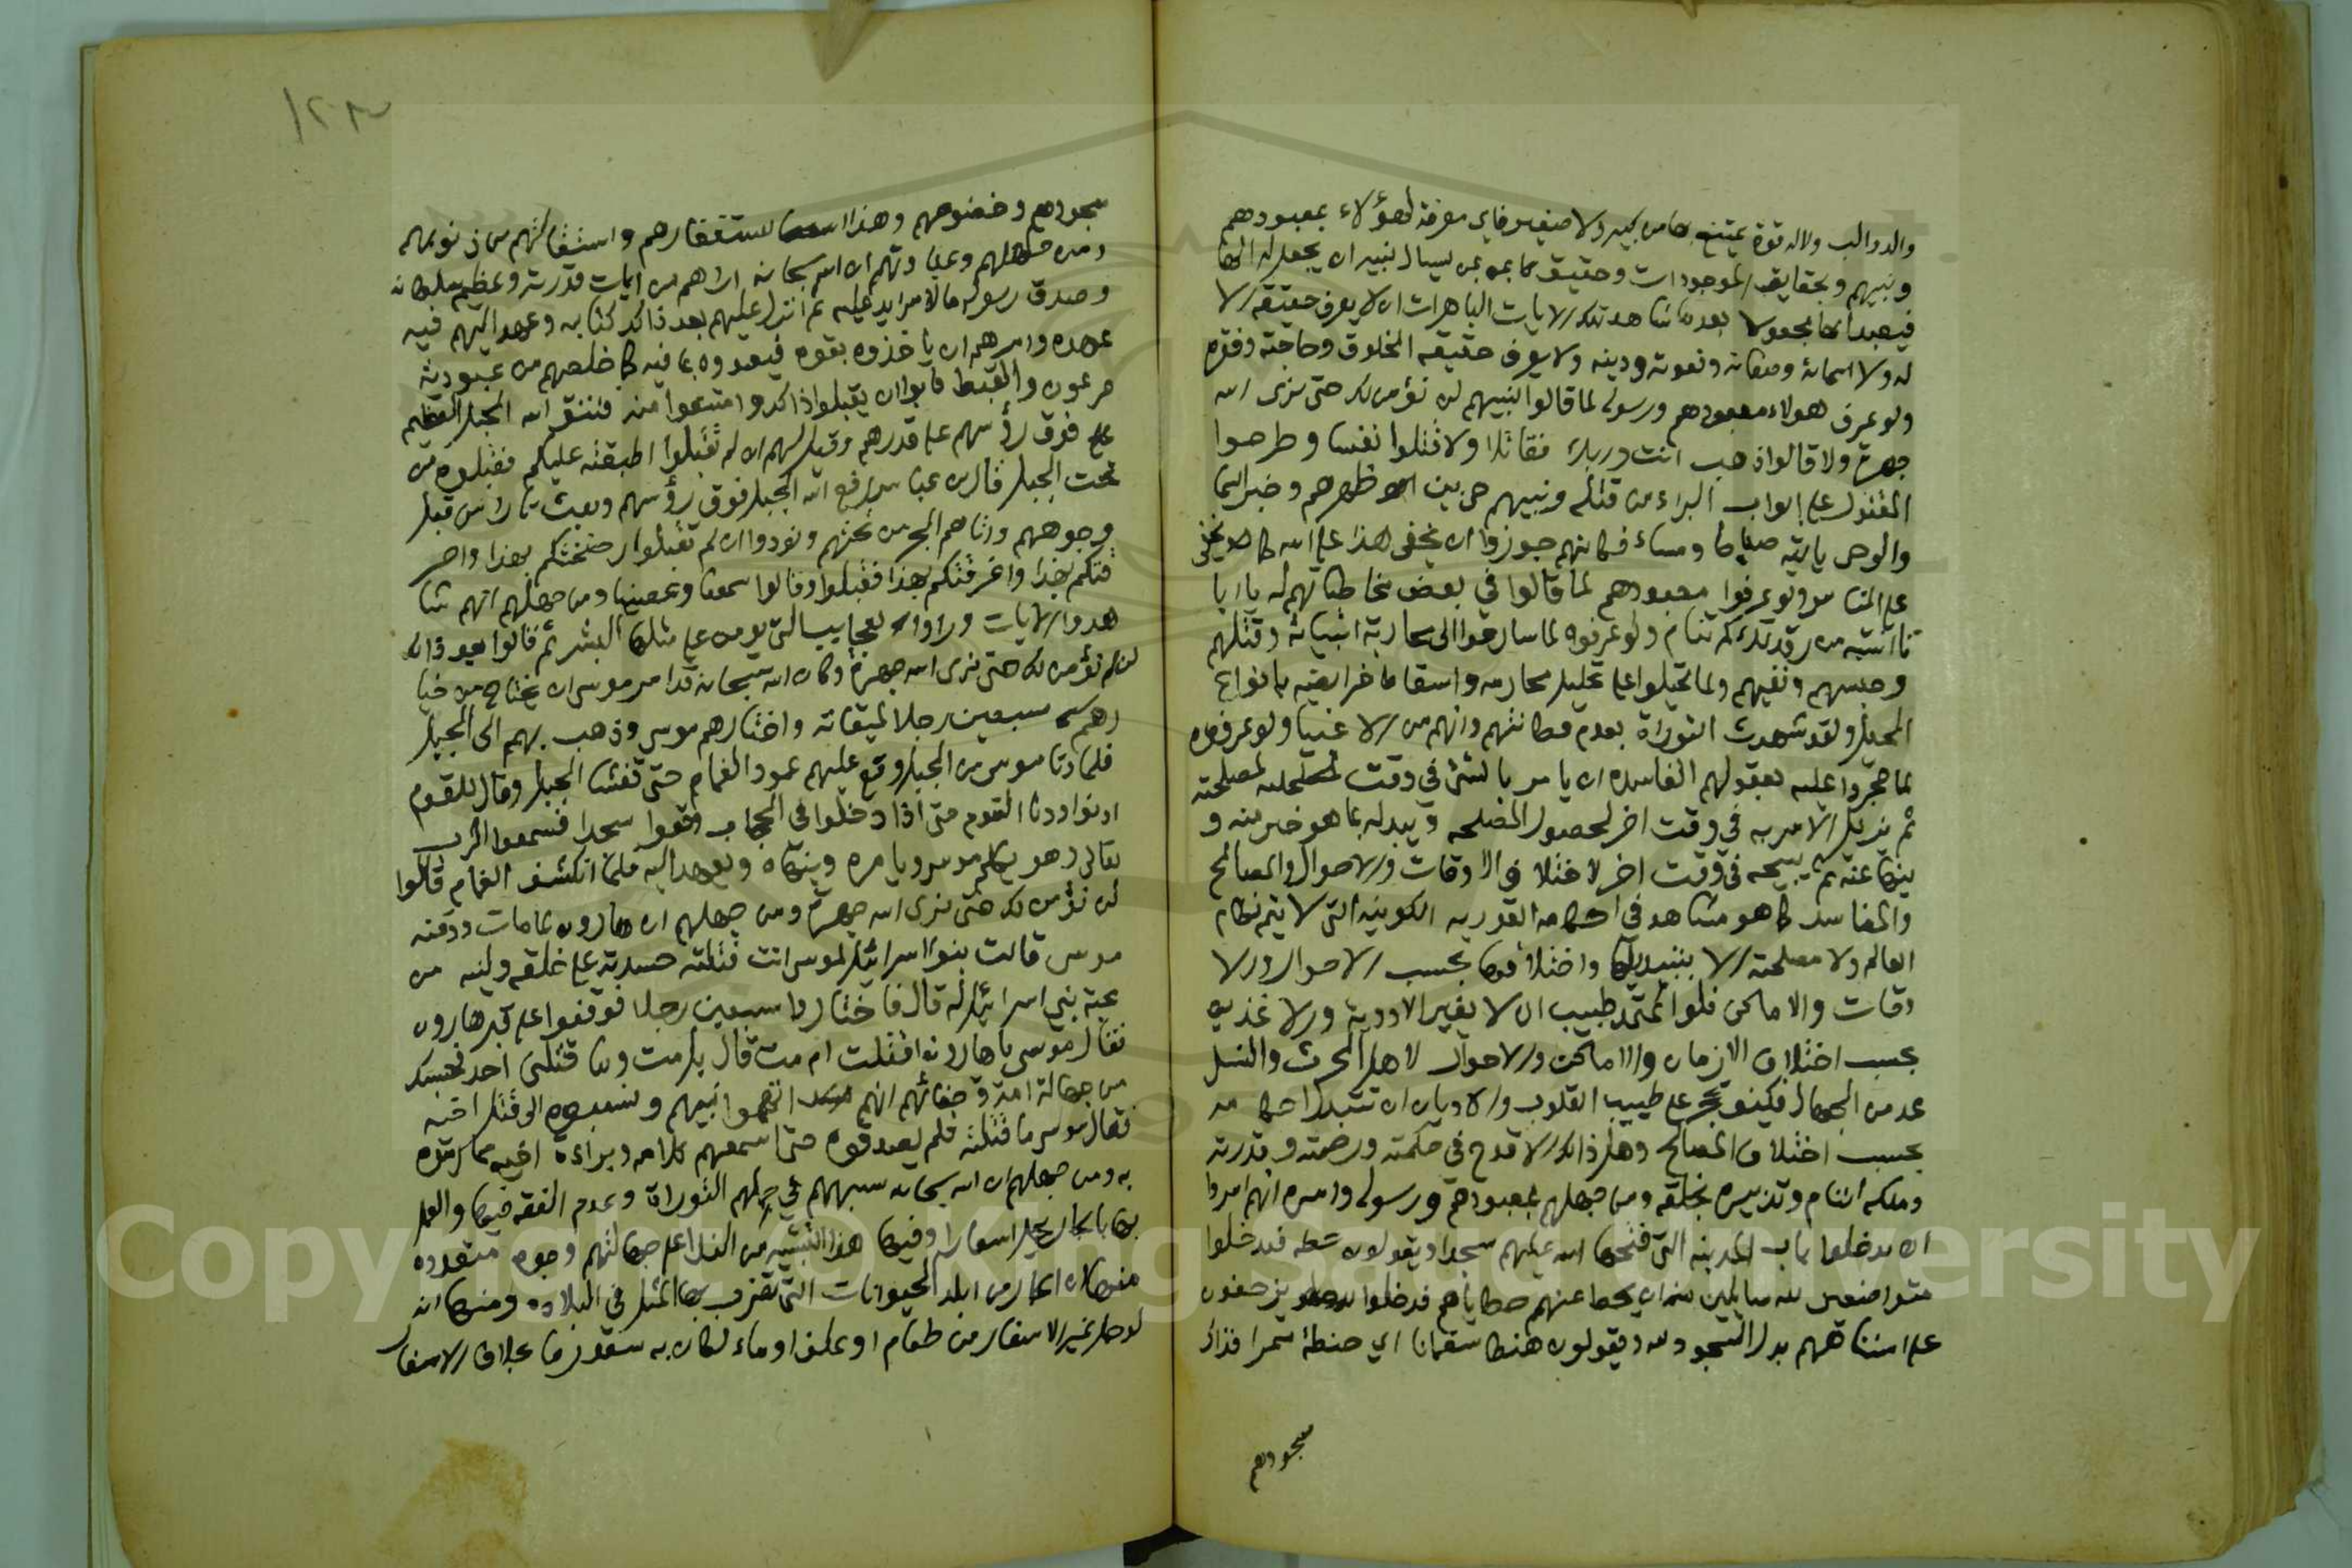 والدوالب ولا له قوة يمتنع بها من كبير ولا صغير فاي معرفة لهؤلاء بمعبودهم
ونبيهم وبحقايق الموجودات وحقيق بمن يسال نبيه ان يجعل له الها
فيعبد الها مجعولا بعد ما شاهد تلك الايات الباهرات ان لا يعرف حقيقة الا
له ولا اسمائه وصفاته ونعوته ودينه ولا يعرف حقيقه المخلوق وحاجته وفقره
ولو عرف هولاء معبودهم ورسوله لما قالوا لنبيهم لن نؤمن لك حتى نرى الله
جهرة ولا قالوا اذهب انت وربك فقاتلا ولا قتلوا نفسا وطرحوا
المقتول على ابواب البراء من قتله ونبيهم حي بين اظهرهم وخبر السما
والوحي ياتيه صباحا ومساء فكانهم جوزوا ان يخفى هذا على الله كما يخفى
على الناس ولو عرفوا معبودهم لما قالوا في بعض مخاطباتهم له يا ابانا
انتبه من رقدتك كم تنام ولو عرفوه لما سارعوا الى محاربة انبيائه وقتلهم
وحبسهم ونفيهم ولما تحيلوا على تحليل محارمه واسقاط فرايضه بانواع
الحيل ولقد شهدت التوراة بعدم فطانتهم وانهم من الاغبيا ولو عرفوه
لما حجروا عليه بعقولهم الفاسده ان يامر بالشئ في وقت لمصلحة
ثم يزيل الامر به في وقت اخر لحصول المصلحه ويبدله بما هو خير منه و
ينها عنه ثم يبيحه في وقت اخر لاختلاف الاوقات والاحوال والمصالح
والمفاسد كما هو مشاهد في احكامه القدريه الكونيه التي لا يتم نظام
العالم ولا مصلحته الا بتبديلها واختلافها بحسب الاحوال والا
وقات والاماكن فلو اعتمد طبيب ان لا يغير الادوية والاغذيه
بحسب اختلاف الازمان والاماكن والاحوال لاهلك الحرث والنسل
عد من الجهال فكيف يحجر على طبيب القلوب والاديان ان تتبدل احكامه
بحسب اختلاف المصالح وهل ذالك الا قدح في حكمته ورحمته وقدرته
وملكه التام وتدبيره لخلقه ومن جهلهم بمعبودهم ورسوله وامره انهم امروا
ان يدخلوا باب المدينه التي فتحها الله عليهم سجدا ويقولون حطه فيدخلوا
متواضعين لله سائلين منه ان يحط عنهم خطاياهم فدخلوا يزحفون
على استاههم بدل السجود لله ويقولون هنطا سقمانا اي حنطة سمرا فذلك
سجودهم
١٢٣
سجودهم وخضوعهم وهذا استغفارهم واستقالتهم من ذنوبهم
ومن جهلهم وغباوتهم ان الله سبحانه اراهم من ايات قدرته وعظيم سلطانه
وصدق رسوله ما لا مزيد عليه ثم انزل عليهم بعد ذالك كتابه وعهد اليهم فيه
عهده وامرهم ان ياخذوه بقوه فيعبدوه بما فيه كما خلصهم من عبودية
فرعون والقبط فابوا ان يقبلوا ذالك وامتنعوا منه فنتق الله الجبل العظيم
على فوق رؤسهم على قدرهم وقيل لهم ان لم تقبلوا اطبقته عليكم فقبلوه من
تحت الجبل قال ابن عباس رفع الله الجبل فوق رؤسهم وبعث نارا من قبل
وجوههم واتاهم البحر من تحتهم ونودوا ان لم تقبلوا رضختكم بهذا واحر
قتكم بهذا واغرقتكم بهذا فقبلوا وقالوا سمعنا وعصينا ومن جهلهم انهم شا
هدوا الايات وراوا العجايب التي يومن على مثلها البشر ثم قالوا بعد ذالك
لن نؤمن لك حتى نرى الله جهرة وكان الله سبحانه قد امر موسى ان يختار من خيا
رهم سبعين رجلا لميقاته واختارهم موسى وذهب بهم الى الجبل
فلما دنا موسى من الجبل وقع عليهم عمود الغمام حتى تغشا الجبل وقال للقوم
ادنوا ودنا القوم حتى اذا دخلوا في الحجاب وقعوا سجدا فسمعوا الرب
تعالى وهو يكلم موسى ويامره وينهاه ويعهد اليه فلما انكشف الغمام قالوا
لن نؤمن لك حتى نرى الله جهرة ومن جهلهم ان هارون لما مات ودفنه
موسى قالت بنوا اسرائيل لموسى انت قتلته حسدته على خلقه ولينه ومن
محبة بني اسرائيل له قال فاختاروا سبعين رجلا فوقفوا على قبر هارون
فقال موسى يا هارون اقتلت ام مت قال بل مت وما قتلني احد فحسبك
من جهالة امة وجفائهم انهم اتهموا نبيهم ونسبوه الى قتل اخيه
فقال موسى ما قتلته فلم يصدقوه حتى اسمعهم كلامه وبراءة اخيه مما رموه
به ومن جهلهم ان الله سبحانه شبههم في حملهم التوراة وعدم الفقه فيها والعمل
بها بالحمار يحمل اسفارا وفي هذا التشبيه من الندا على جهالتهم وجوه متعدده
منها ان الحمار من ابلد الحيوانات التي يضرب بها المثل في البلاده ومنها انه
لو حمل غير الاسفار من طعام او علف او ماء لكان به شعور بها بخلاف الاسفار